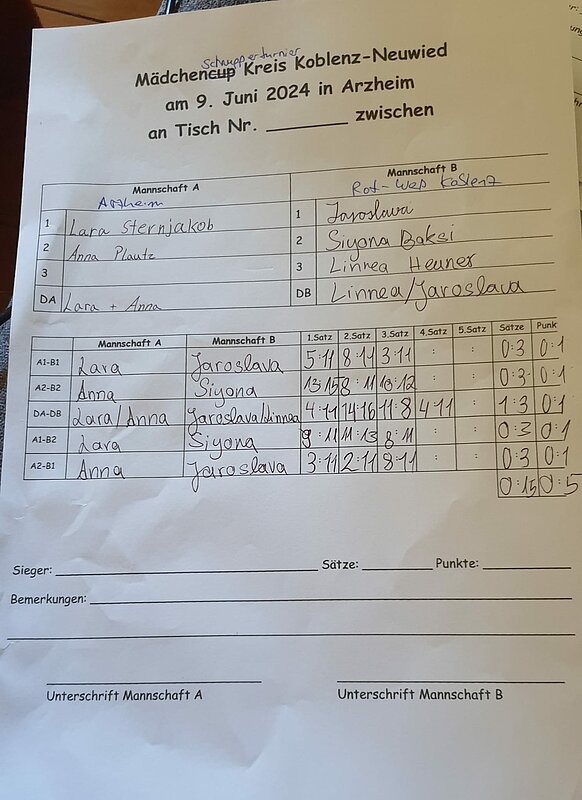 Schnupperturnier
Mädchencup Kreis Koblenz-Neuwied
am 9. Juni 2024 in Arzheim
an Tisch Nr. ________ zwischen
Mannschaft A Mannschaft B
Arzheim Rot-Weiß Koblenz
1 Lara Sternjakob 1 Jaroslava
2 Anna Plautz 2 Siyona Baksi
3 3 Linnea Heuner
DA Lara + Anna DB Linnea/Jaroslava
Mannschaft A Mannschaft B 1.Satz 2.Satz 3.Satz 4.Satz 5.Satz Sätze Punk
A1-B1 Lara Jaroslava 5:11 8:11 3:11 : : 0:3 0:1
A2-B2 Anna Siyona 13:15 8:11 10:12 : : 0:3 0:1
DA-DB Lara/Anna Jaroslava/Linnea 4:11 14:16 11:8 4:11 : 1:3 0:1
A1-B2 Lara Siyona 9:11 11:13 8:11 : : 0:3 0:1
A2-B1 Anna Jaroslava 3:11 2:11 8:11 : : 0:3 0:1
0:15 0:5
Sieger: ________ Sätze: ________ Punkte: ________
Bemerkungen: ________
Unterschrift Mannschaft A Unterschrift Mannschaft B